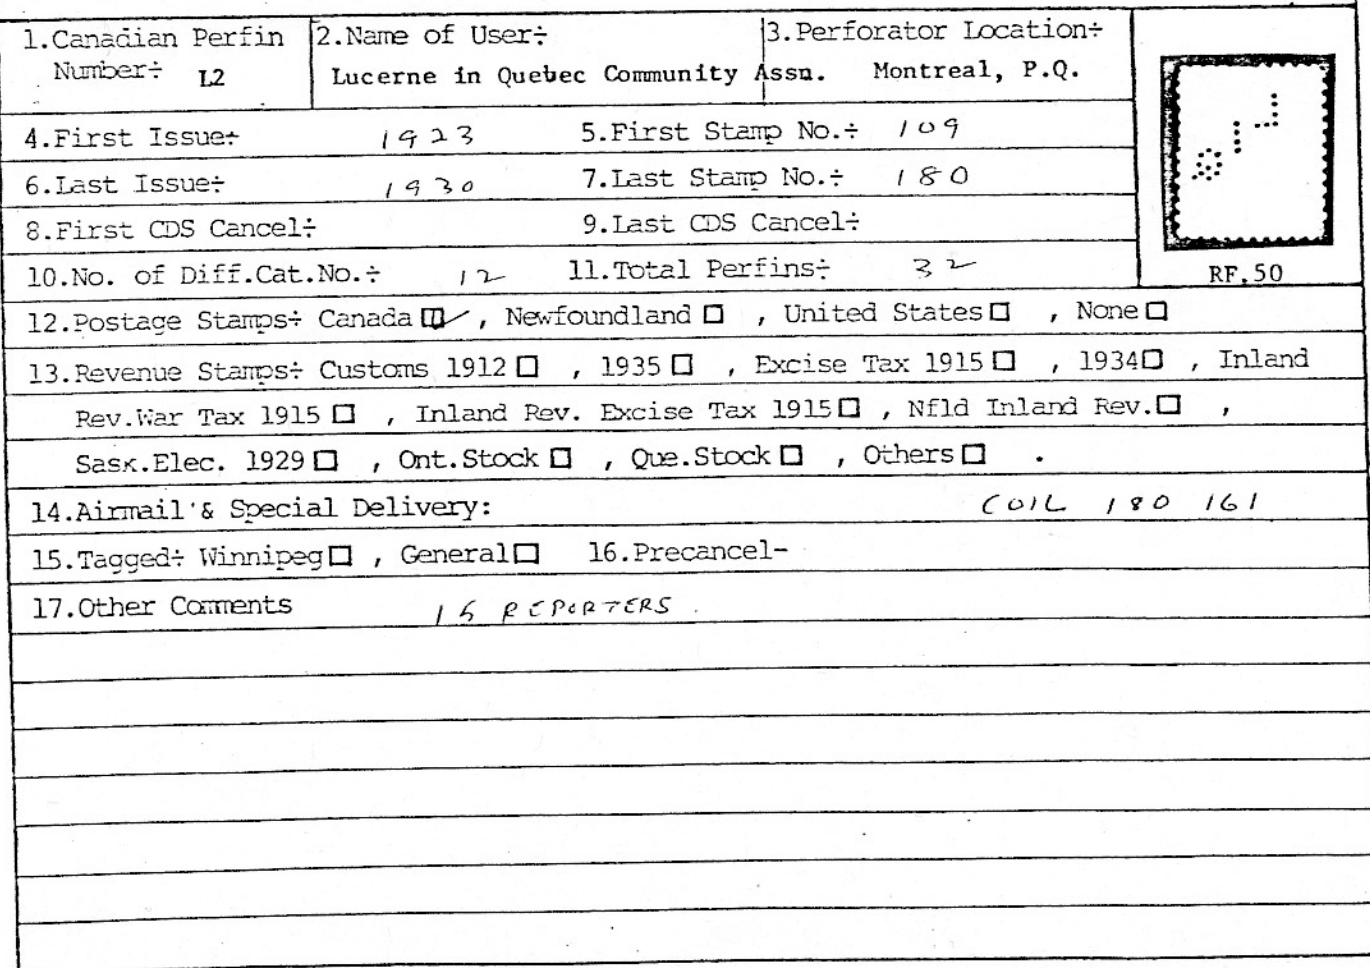 1.Canadian Perfin Number÷ L2
2.Name of User÷
Lucerne in Quebec Community Assn.
3.Perforator Location÷
Montreal, P.Q.
4.First Issue÷ 1923 5.First Stamp No.÷ 109
6.Last Issue÷ 1930 7.Last Stamp No.÷ 180
8.First CDS Cancel÷ 9.Last CDS Cancel÷
10.No. of Diff.Cat.No.÷ 12 11.Total Perfins÷ 32
RF.50
12.Postage Stamps÷ Canada☑, Newfoundland☐, United States☐, None☐
13.Revenue Stamps÷ Customs 1912☐, 1935☐, Excise Tax 1915☐, 1934☐, Inland
Rev.War Tax 1915☐, Inland Rev. Excise Tax 1915☐, Nfld Inland Rev.☐,
Sask.Elec. 1929☐, Ont.Stock☐, Que.Stock☐, Others☐.
14.Airmail & Special Delivery: COIL 180 161
15.Tagged÷ Winnipeg☐, General☐ 16.Precancel-
17.Other Comments REPORTERS